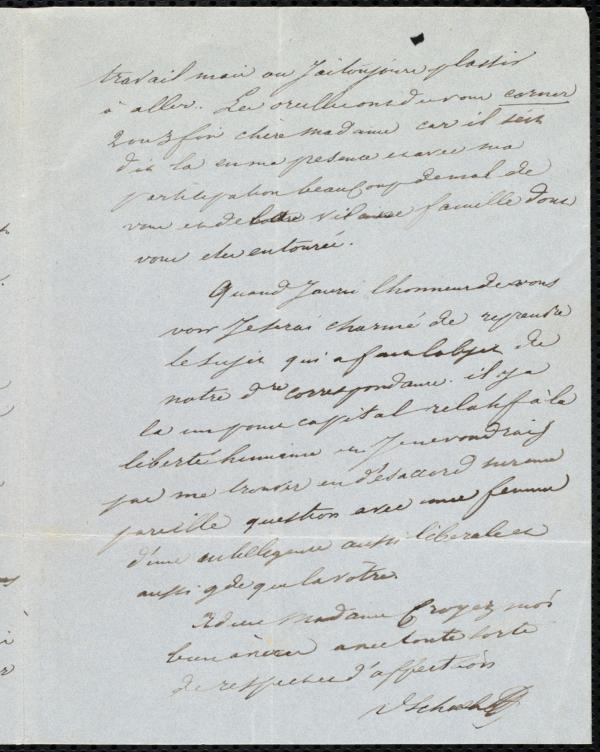 travail mais ou J'ai toujours plaisir
à aller. Les oreilles ont du vous corner
2 ou 3 fois chère madame car il s'est
dit la en ma presence et avec ma
participation beaucoup de mal de
vous et de la vilaine famille dont
vous etes entourée.
Quand J'aurai l'honneur de vous
voir Je serai charmé de reprendre
le sujet qui a fait l'objet de
notre dre correspondance. il y a
la un point capital relatif à la
liberté humaine et Je ne voudrais
pas me trouver en désaccord sur une
pareille question avec une femme
d'une intelligence aussi libérale et
aussi gde que la vôtre.
Adieu Madame Croyez moi
bien à vous avec toute sorte
de respect et d'affection